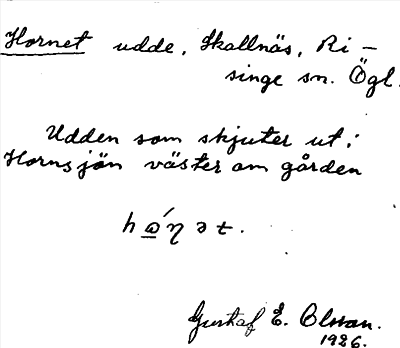 Hornet udde, Skallnäs, Ri-
singe sn. Ögl.
Udden som skjuter ut i
Hornsjön väster om gården
hɷ́ŋət.
Gustaf E. Olsson.
1926.